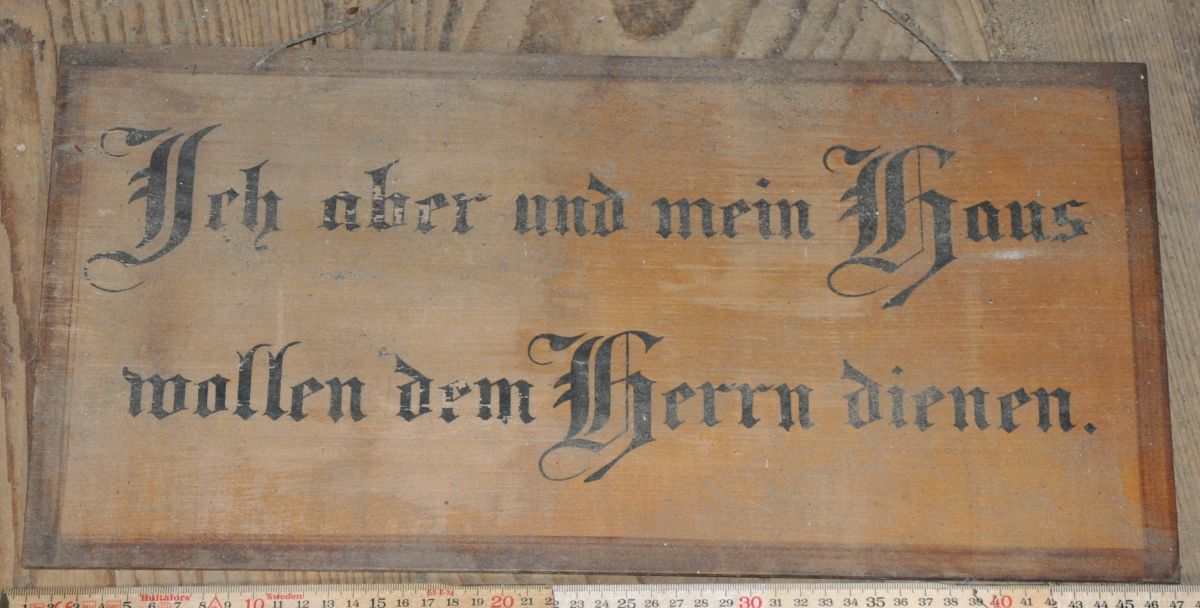 Ich aber und mein Haus
wollen dem Herrn dienen.
Hultafors Sweden
1 2 3 4 5 6 7 8 9 10 11 12 13 14 15 16 17 18 19 20 21 22 23 24 25 26 27 28 29 30 31 32 33 34 35 36 37 38 39 40 41 42 43 44 45 46 47